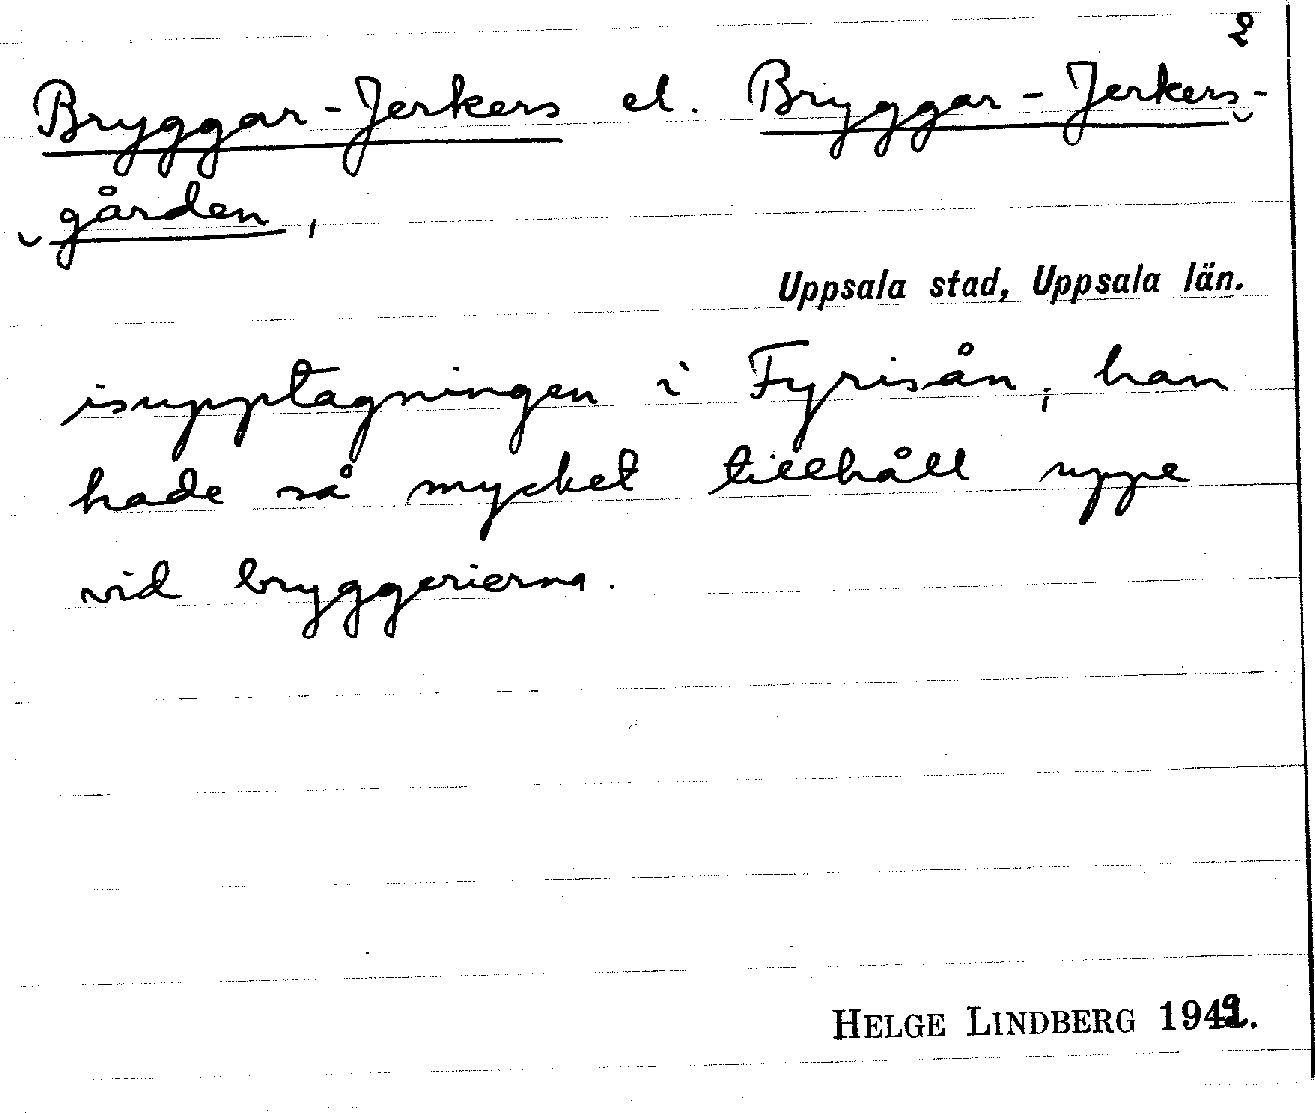 2
Bryggar-Jerkers el. Bryggar-Jerkers-
gården,
Uppsala stad, Uppsala län.
isupptagningen i Fyrisån, han
hade så mycket tillhåll uppe
vid bryggerierna.
HELGE LINDBERG 1942.